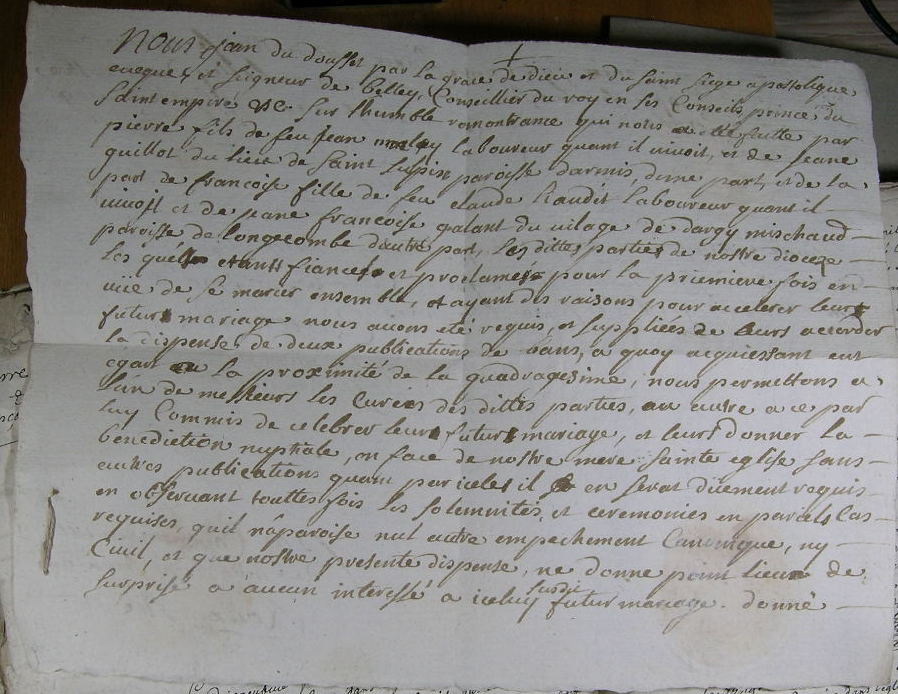 Nous jean du dousset par la grace de dieu et du saint siege apostolique
eveque, et seigneur de belley, Conseillier du roy en ses Conseils, prince du
saint empire &c. sur l'humble remontrance qui nous a été faitte par
pierre fils de feu Jean laboureur quant il vivoit, et de jeane
guillot du lieu de saint Sulpise paroisse darmis, dune part, et de la
part de francoise fille de feu claude laboureur quant il
vivoit et de jeane francoise galant du vilage de dargy mischaud
paroisse de longecombe dautre part, les dittes parties de nostre dioceze
les quels etants fiances et proclames pour la priemiere fois en
vüe de se marier ensemble, et ayant des raisons pour accelerer leur
futur mariage nous avons eté requis, et suppliees de leurs accorder
la dispense de deux publications de bans, a quoy acquiessant eut
egart a la proximité de la quadragesime, nous permettons a
lun de messieurs les Curées des dittes parties, ou autre a ce par
luy Commis de celebrer leur futur mariage, et leurs donner la
benediction nuptiale, en face de nostre mere sainte eglise sans
autres publications quant par iceles il en serat düement requis
en observant touttes fois les solemnités, et ceremonies en pareils Cas
requises, quil naparoise nul autre empechement Canonique, ny
Civil, et que nostre presente dispense, ne donne point lieu de
surprise a aucun interessé a iceluy susdit futur mariage. donné